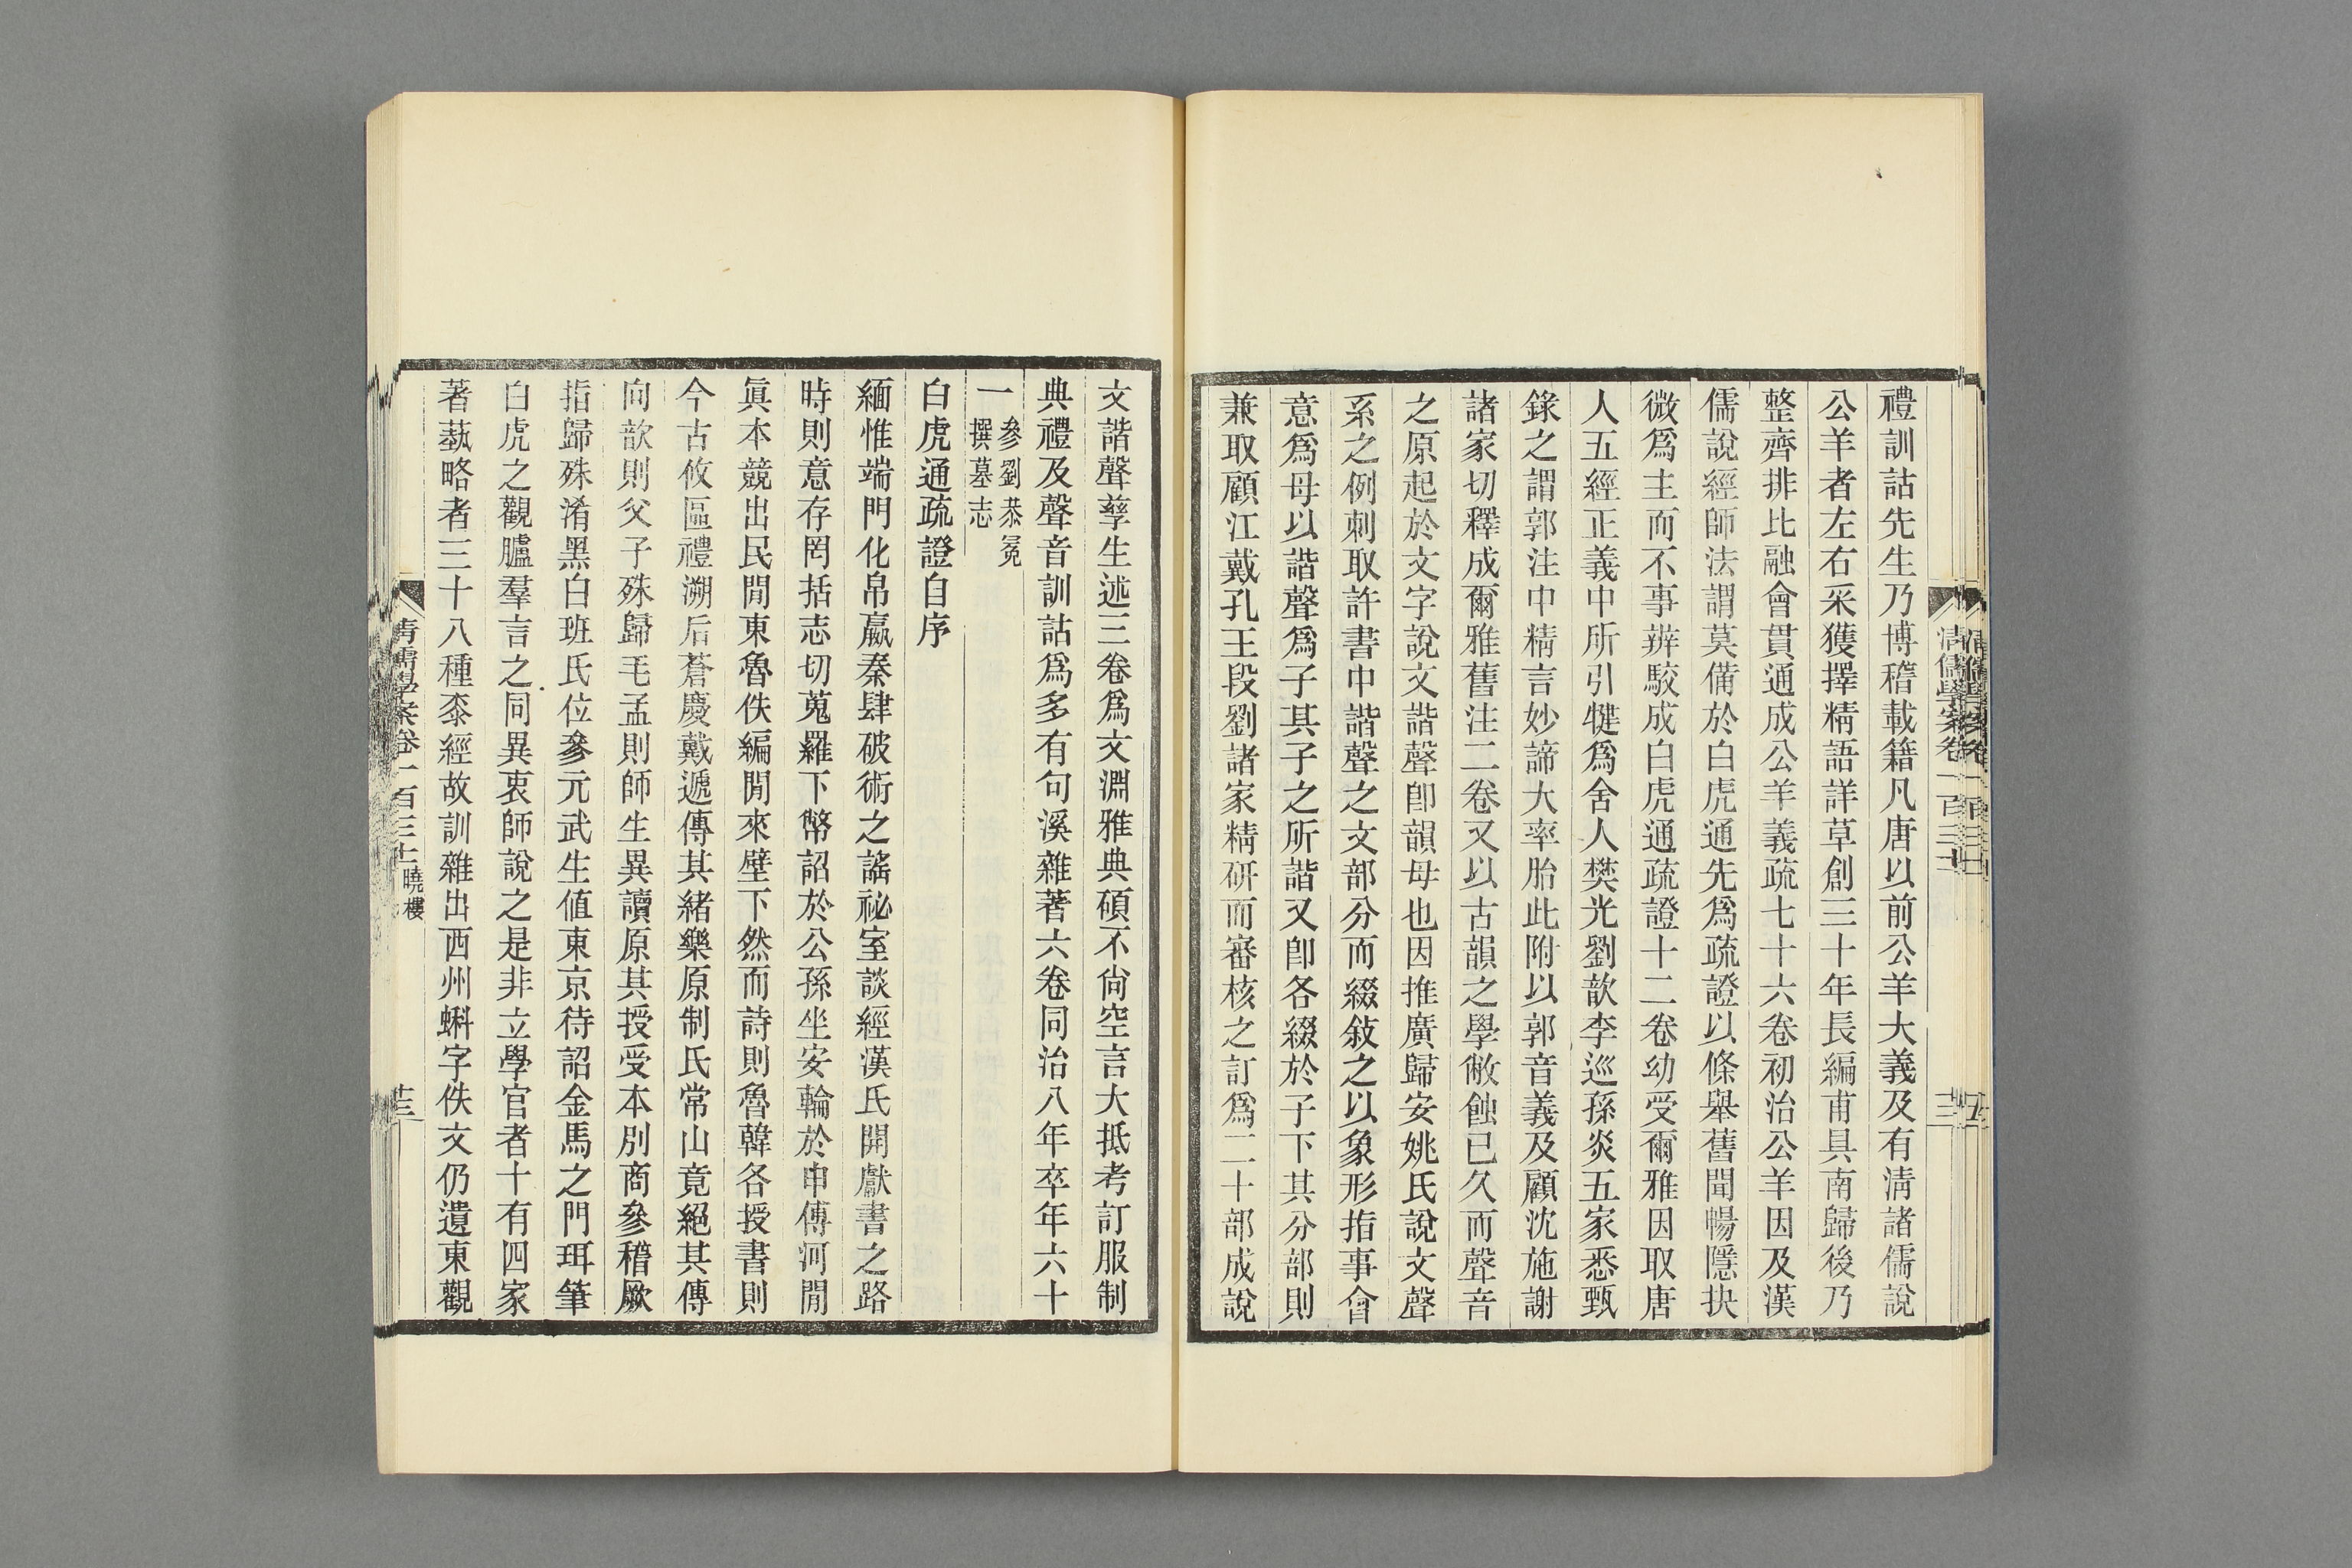 禮訓詁先生乃博稽載籍凡唐以前公羊大義及有淸諸儒說
公羊者左右采獲擇精語詳草創三十年長編甫具南歸後乃
整齊排比融會貫通成公羊義疏七十六卷初治公羊因及漢
儒說經師法謂莫備於白虎通先爲疏證以條舉舊聞暢隱抉
微爲主而不事辨駮成白虎通疏證十二卷幼受爾雅因取唐
人五經正義中所引犍爲舍人樊光劉歆李巡孫炎五家悉甄
錄之謂郭注中精言妙諦大率胎此附以郭音義及顧沈施謝
諸家切釋成爾雅舊注二卷又以古韻之學敝蝕已久而聲音
之原起於文字說文諧聲卽韻母也因推廣歸安姚氏說文聲
系之例刺取許書中諧聲之文部分而綴敍之以象形指事會
意爲母以諧聲爲子其子之所諧又卽各綴於子下其分部則
兼取顧江戴孔王段劉諸家精研而審核之訂爲二十部成說
文諧聲孳生述三卷爲文淵雅典碩不尙空言大抵考訂服制
典禮及聲音訓詁爲多有句溪雜著六卷同治八年卒年六十
一 參劉恭冕
撰墓志
白虎通疏證自序
緬惟端門化帛嬴秦肆破術之謠祕室談經漢氏開獻書之路
時則意存罔括志切蒐羅下幣詔於公孫坐安輪於申傅河閒
眞本競出民閒東魯佚編閒來壁下然而詩則魯韓各授書則
今古攸區禮溯后蒼慶戴遞傳其緖樂原制氏常山竟絕其傳
向歆則父子殊歸毛孟則師生異讀原其授受本別商參稽厥
指歸殊淆黑白班氏位參元武生値東京待詔金馬之門珥筆
白虎之觀臚羣言之同異衷師說之是非立學官者十有四家
著蓺略者三十八種桼經故訓雜出西州蝌字佚文仍遺東觀
淸儒學案卷一百三十一 曉樓